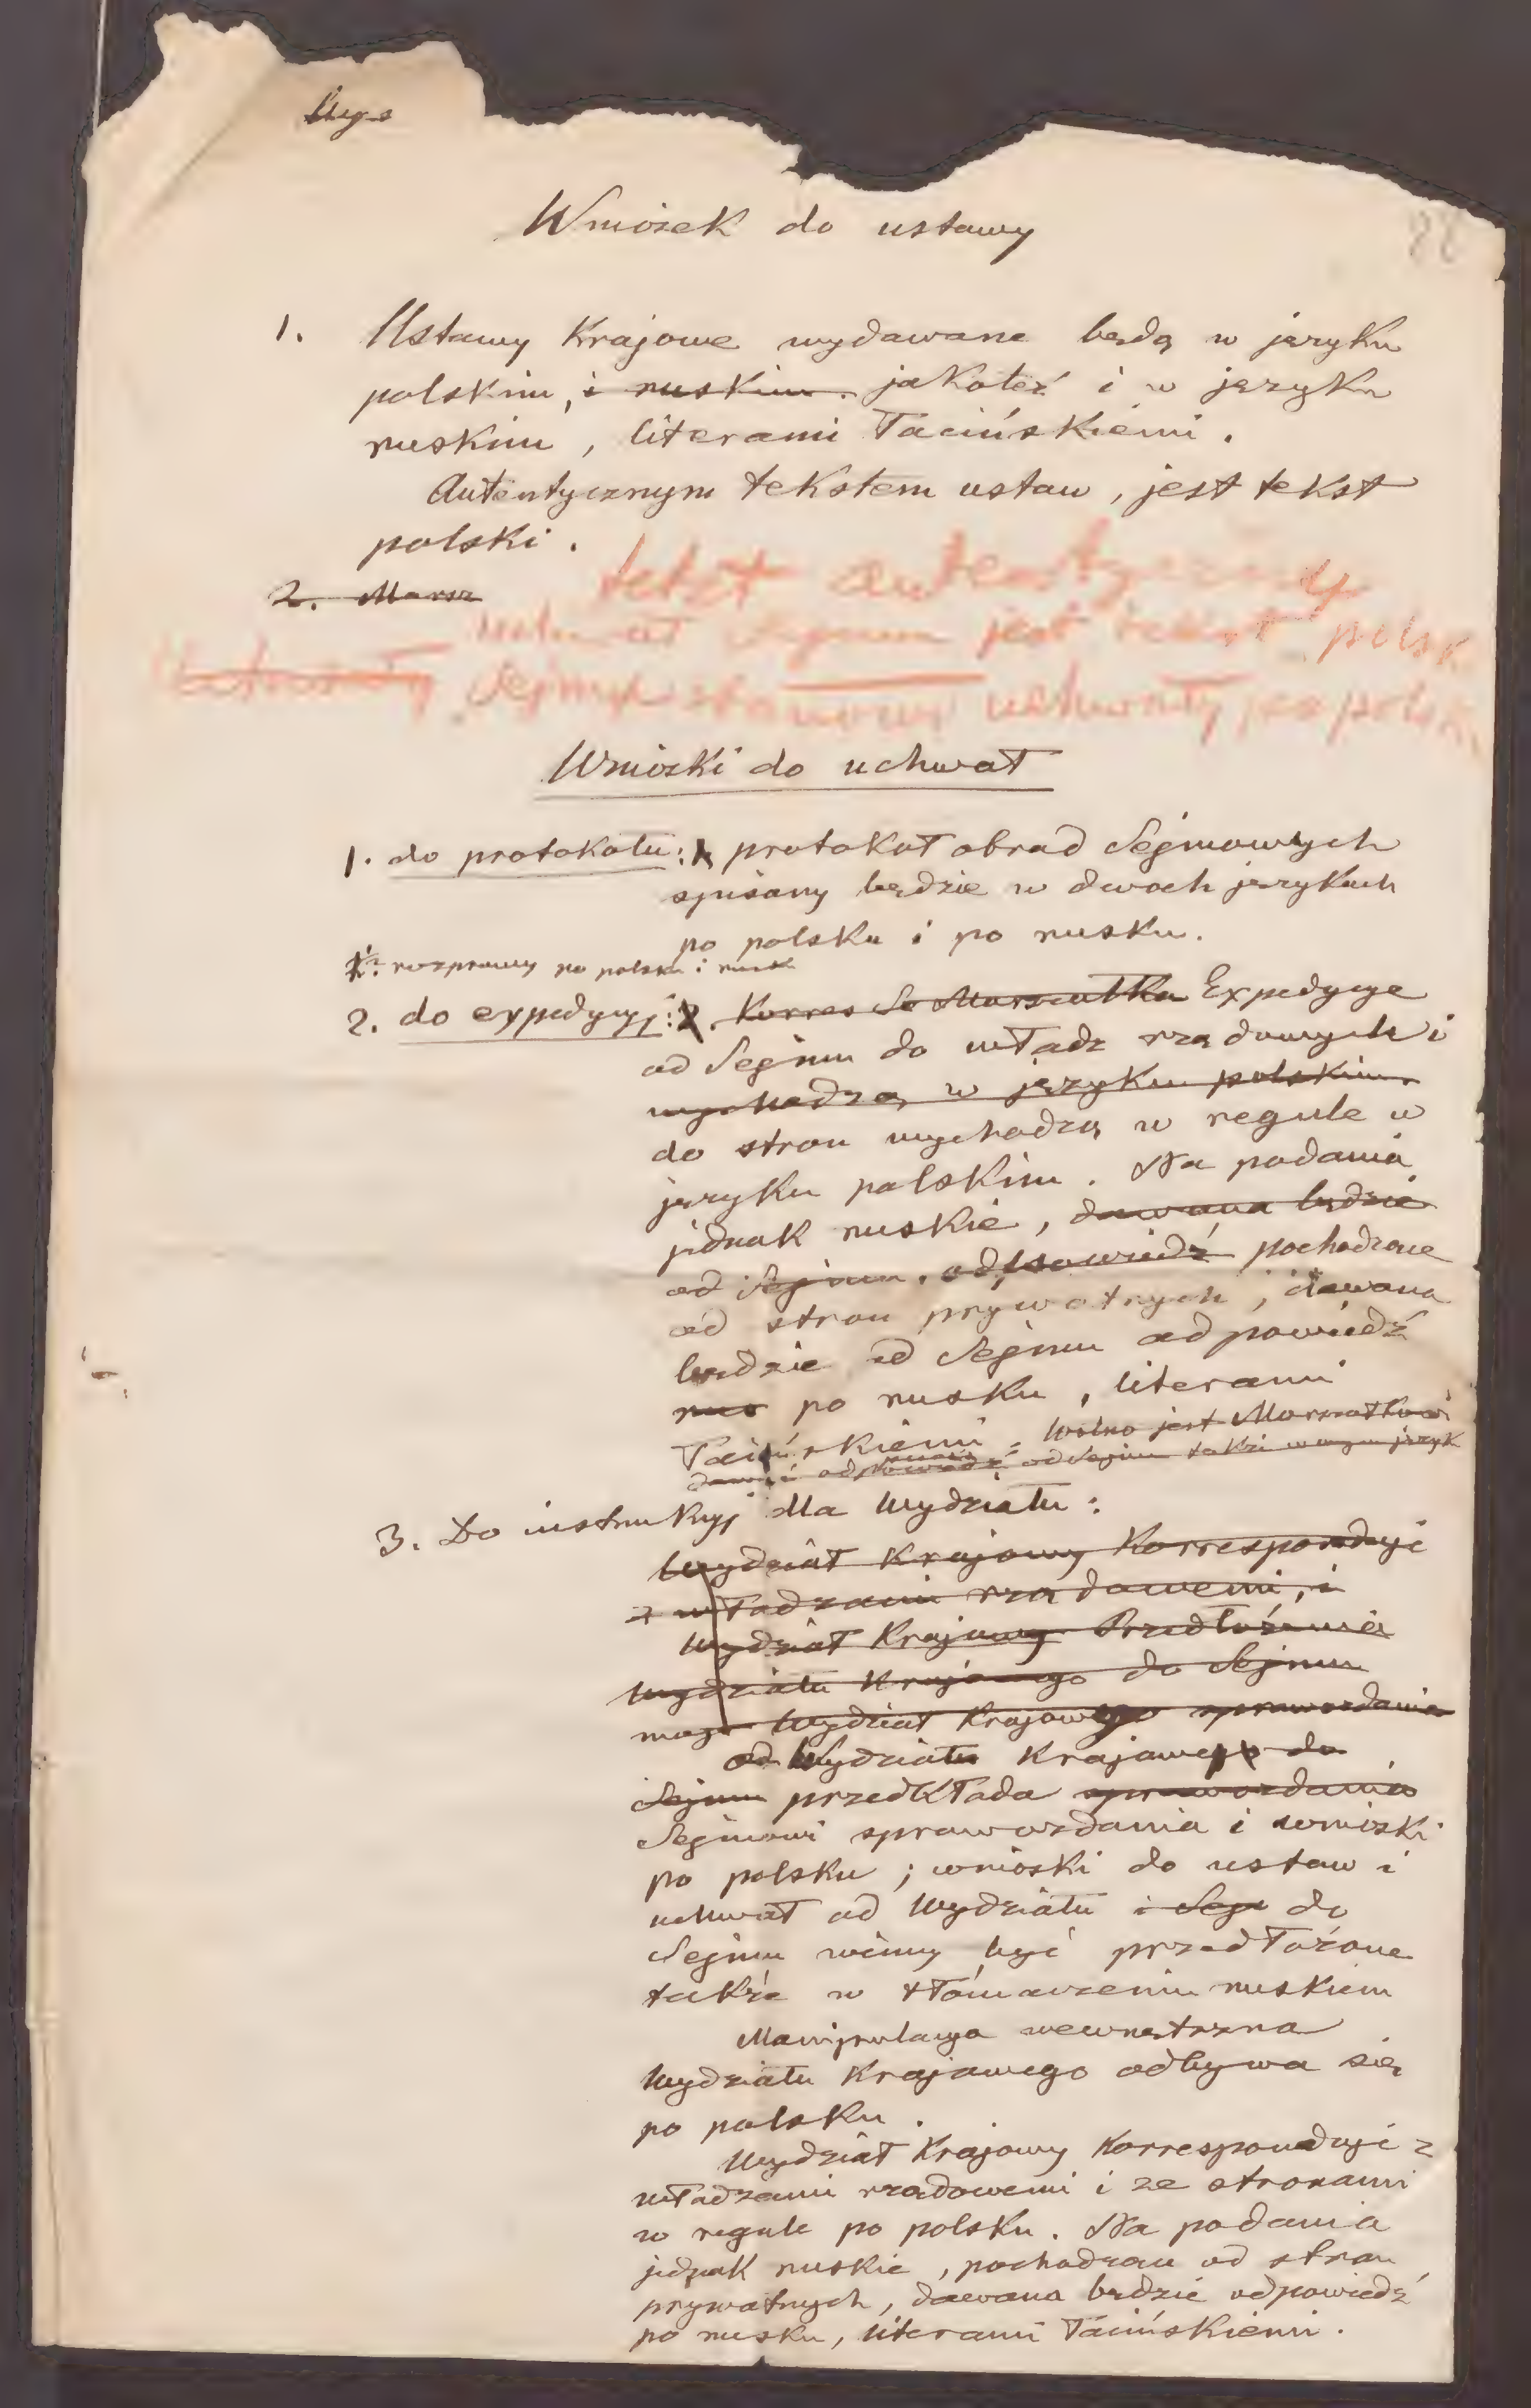 88
Wniosek do ustawy
1. Ustawy Krajowe wydawane będą w języku
polskim, i ruskim. jakoteż i w języku
ruskim, literami łacińskiemi.
Autentycznym tekstem ustaw, jest tekst
polski.
2. Marsz
tekst autentyczny
uchwał Sejmu jest tekst polsk
Sejmu uchwały po polsk
Wnioski do uchwał
1. do protokołu: protokół obrad Sejmowych
spisany będzie w dwoch językach
po polsku i po rusku.
rozprawy po polsku i rusk
2. do expedycyj: 2. Korres Se Marszałka Expedycye
od Sejmu do władz rządowych i
wychodzą w języku polskim.
do stron wychodzą w regule w
języku polskim. Na podania
jednak ruskie, dawana będzie
od Sejmu, odpowiedź pochodzące
od stron prywatnych, dawana
będzie od Sejmu odpowiedź
rus po rusku, literami
łacińskiemi. Wolno jest Marszałkowi
dawać odpowiedź od Sejmu także w języku
3. Do instrukcyj dla Wydziału:
Wydział Krajowy Korresponduje
z władzami rządowemi, i
Wydział Krajowy Przedłożenia
Wydziału Krajowego do Sejmu
Wydział Krajowego sprawozdania
od Wydziału Krajowego do
Sejmu przedkłada sprawozdania
Sejmowi sprawozdania i wnioski
po polsku; wnioski do ustaw i
uchwał od Wydziału i Sej do
Sejmu winny być przedłożone
także w tłómaczeniu ruskiem
Manipulacya wewnętrzna
Wydziału Krajowego odbywa się
po polsku.
Wydział Krajowy Korresponduje z
władzami rządowemi i ze stronami
w regule po polsku. Na podania
jednak ruskie, pochodzące od stron
prywatnych, dawana będzie odpowiedź
po rusku, literami łacińskiemi.